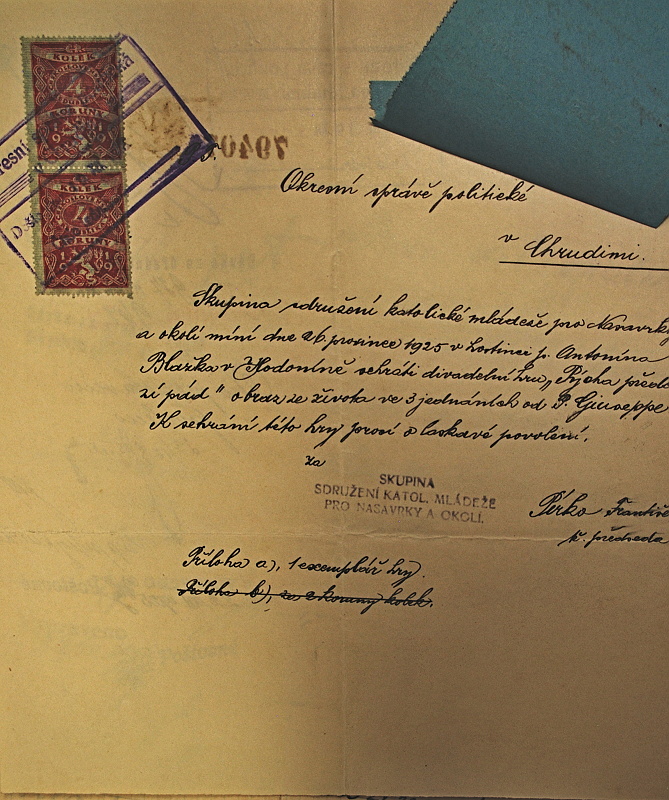 KOLEK
4
KORUNY
1919
KOLEK
4
KORUNY
1919
Okresní správě politické
v Chrudimi.
Skupina sdružení katolické mládeže pro Nasavrky
a okolí míní dne 26. prosince 1925 v hostinci p. Antonína
Blažka v Hodoníně sehráti divadelní hru „Pýcha předch
zí pád" obraz ze života ve 3 jednáních od P. Giuseppe
K sehrání této hry prosí o laskavé povolení.
za
SKUPINA
SDRUŽENÍ KATOL. MLÁDEŽE
PRO NASAVRKY A OKOLÍ.
Perko Františe
t. č. předseda
Příloha a), 1 exemplář hry.
Příloha b), za 2 koruny kolek.